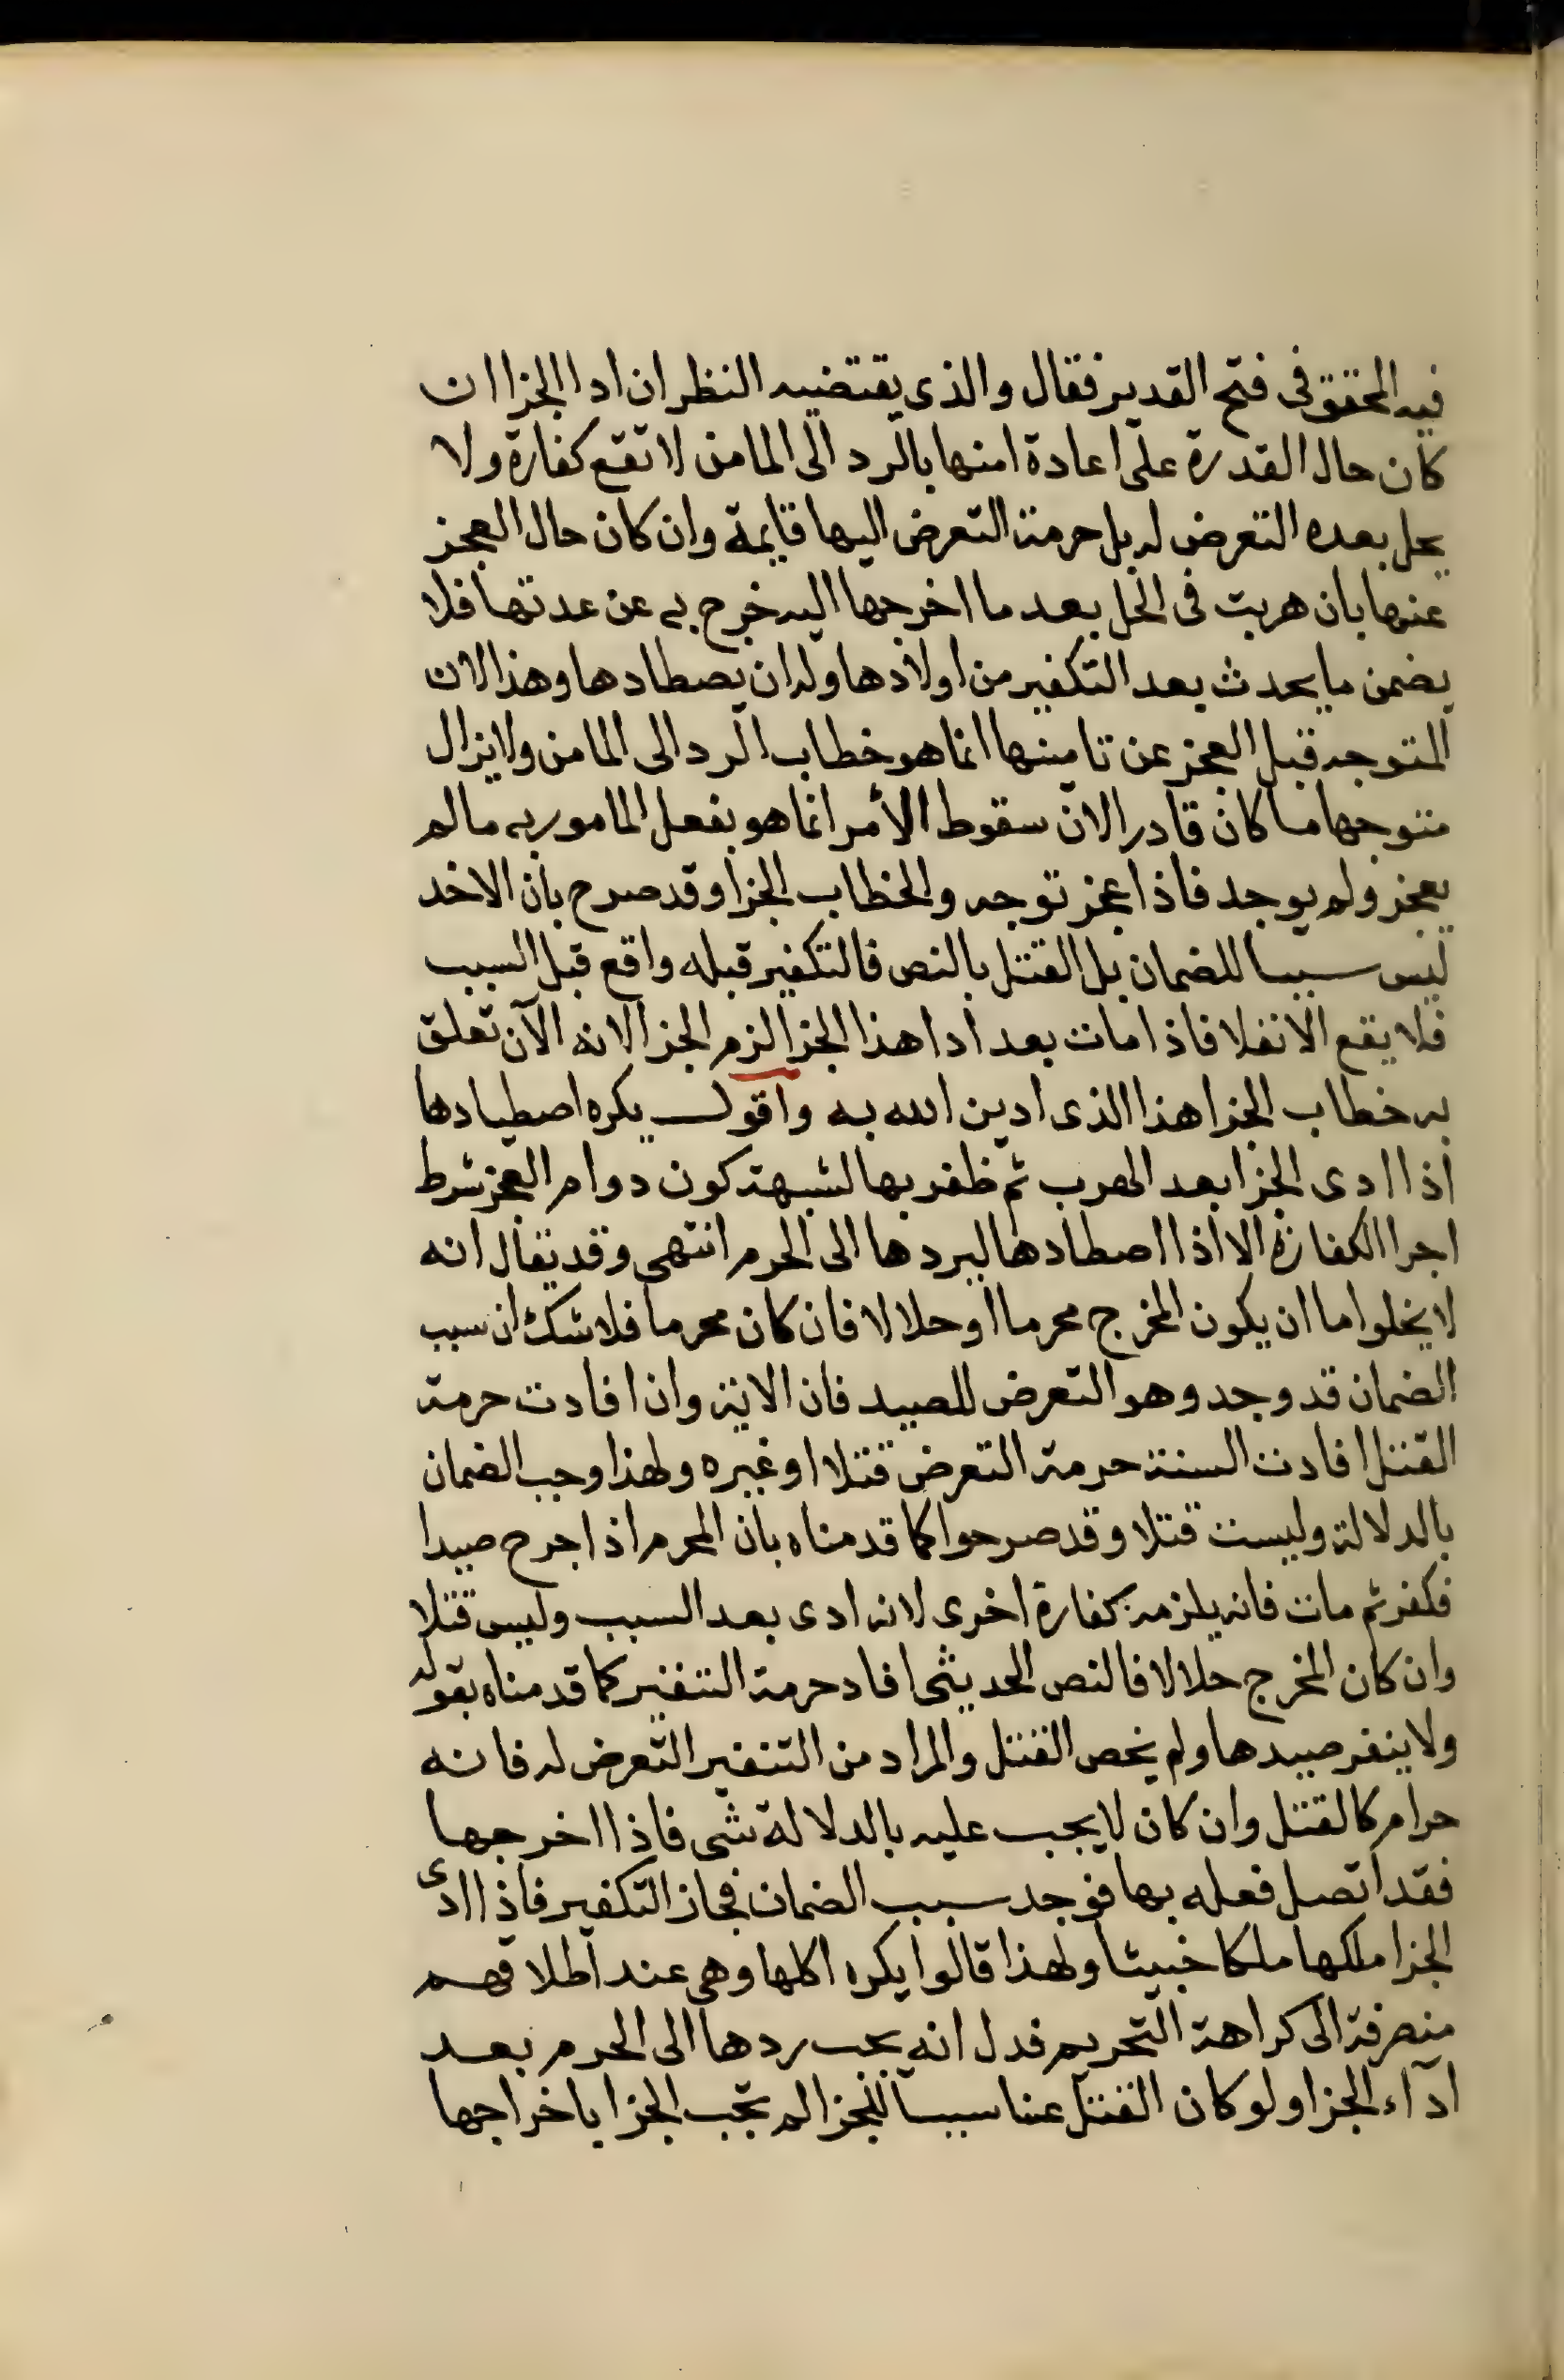 فيه المحقق فى فتح القدير فقال والذى يقتضيه النظر ان ادا الجزا ان
كان حال القدرة على اعادة امنها بالرد الى المامن لا تقع كفارة ولا
يحل بعده التعرض له بل حرمة التعرض اليها قايمة وان كان حال العجز
عنها بان هربت فى الحل بعد ما اخرجها اليه خرج به عن عدتها فلا
يضمن ما يحدث بعد التكفير من اولادها وله ان يصطادها وهذا لان
المتوجه قبل العجز عن تامينها انما هو خطاب الرد الى المامن ولا يزال
متوجها ما كان قادرا لان سقوط الأمر انما هو بفعل المامور به ما لم
يعجز ولم يوجد فاذا عجز توجه والخطاب الجزا وقد صرح بان الاخد
ليس سببا للضمان بل القتل بالنص فالتكفير قبله واقع قبل السبب
فلا يقع الا نفلا فاذا مات بعد ادا هذا الجزا لزم الجزا لانه الآن تعلق
به خطاب الجزا هذا الذى ادين الله به واقول يكره اصطيادها
اذا ادى الجزا بعد الهرب ثم ظفر بها لشبهة كون دوام العجز شرط
اجرا الكفارة الا اذا اصطادها ليردها الى الحرم انتهى وقد يقال انه
لا يخلوا اما ان يكون المخرج محرما او حلالا فان كان محرما فلا شك ان سبب
الضمان قد وجد وهو التعرض للصيد فان الاية وان افادت حرمة
القتل افادت السنة حرمة التعرض قتلا او غيره ولهذا وجب الضمان
بالدلالة وليست قتلا وقد صرحوا كما قدمناه بان المحرم اذا جرح صيدا
فكفر ثم مات فانه يلزمه كفارة اخرى لانه ادى بعد السبب وليس قتلا
وان كان المخرج حلالا فالنص الحديثى افاد حرمة التنفير كما قدمناه بقوله
ولا ينفر صيدها ولم يخص القتل والمراد من التنفير التعرض له فانه
حرام كالقتل وان كان لا يجب عليه بالدلالة شى فاذا اخرجها
فقد اتصل فعله بها فوجد سبب الضمان فجاز التكفير فاذا ادى
الجزا ملكها ملكا خبيثا ولهذا قالوا يكره اكلها وهى عند اطلاقهم
منصرفة الى كراهة التحريم فدل انه يجب ردها الى الحرم بعد
ادآء الجزا ولو كان القتل عينا سببا للجزا لم تجب الجزا باخراجها